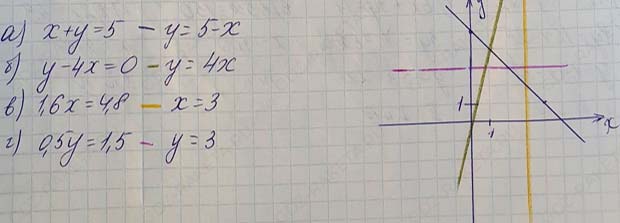 а) x+y=5 — y=5-x
б) y-4x=0 - y=4x
в) 1,6x=4,8 — x=3
г) 0,5y=1,5 - y=3
y
1
1
x